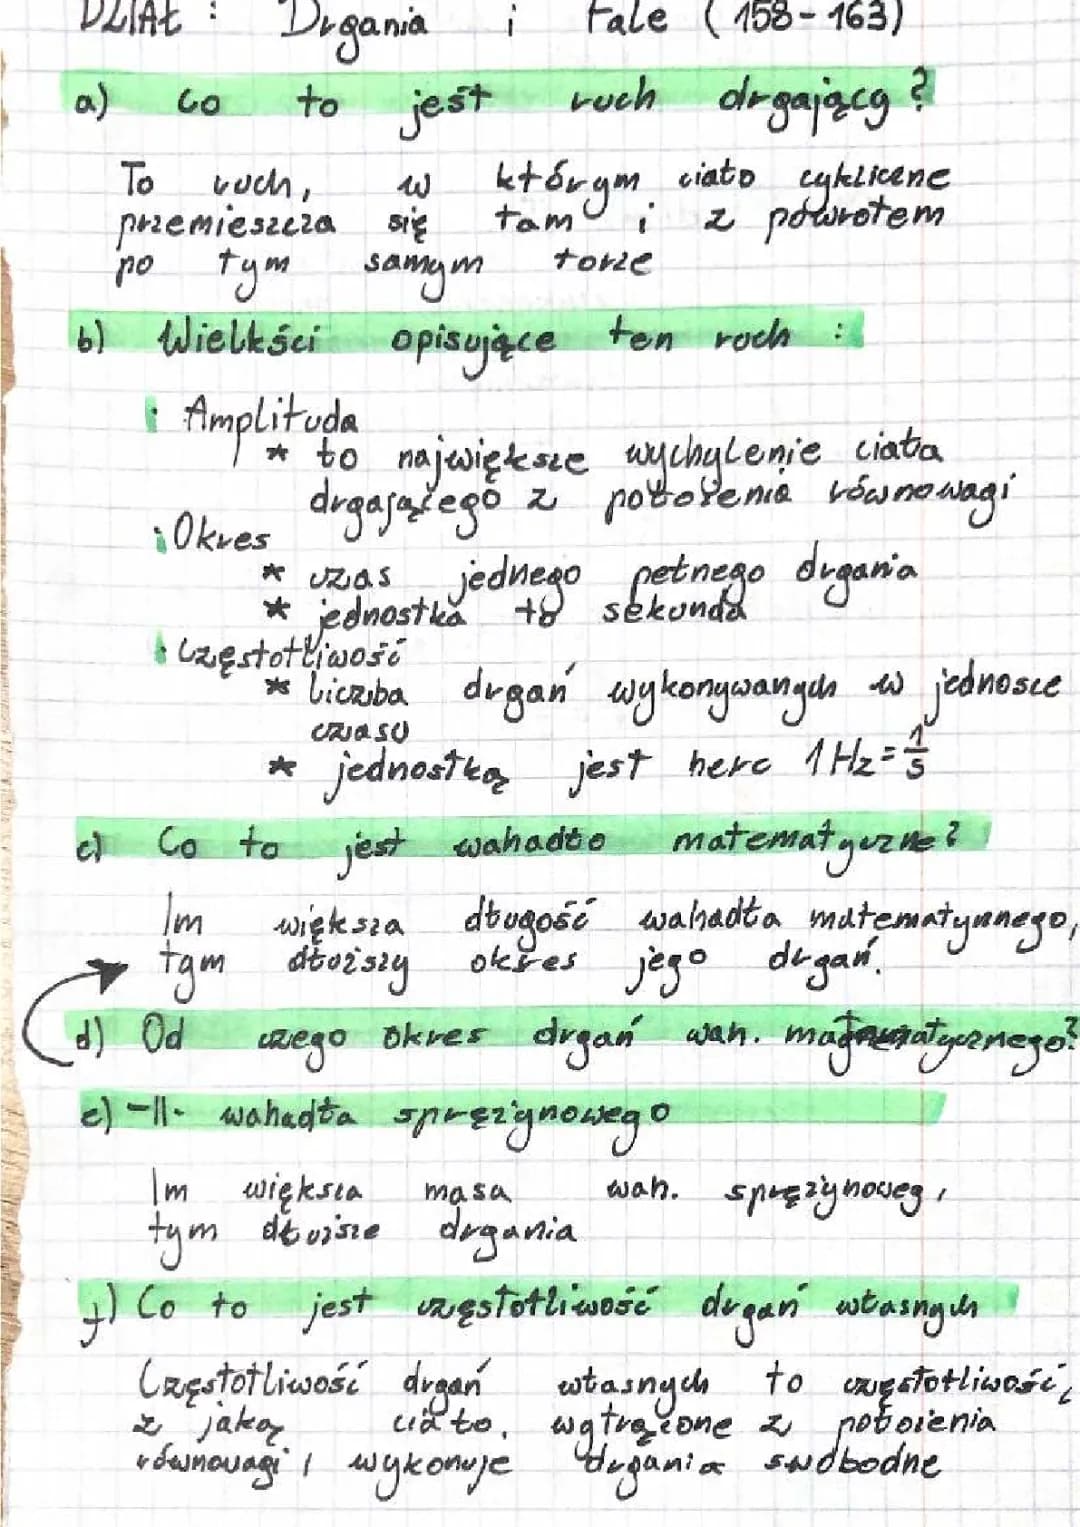 DZIAŁ : Drgania i Fale (158-163)
a) Co to jest ruch drgający?
To ruch, w którym ciało cykliczne
przemieszcza się tam i z powrotem
po tym samym torze
b) Wielkści opisujące ten ruch :
Amplituda
* to największe wychylenie ciała
drgającego z położenia równowagi
Okres
* czas jednego pełnego drgania
* jednostka to sekunda
Częstotliwość
* liczba drgań wykonywanych w jednosce
czasu
* jednostką jest herc 1 Hz = 1/s
c) Co to jest wahadło matematyczne?
Im większa długość wahadła matematynnego,
tym dłuższy okres jego drgań.
d) Od czego okres drgań wah. matematycznego?
e) -||- wahadła sprężynowego
Im większa masa wah. sprężynoweg,
tym dłuższe drgania
f) Co to jest częstotliwość drgań własnych
Częstotliwość drgań własnych to częstotliwość,
z jaką ciało, wytrącone z położenia
równowagi, wykonuje drgania swobodne